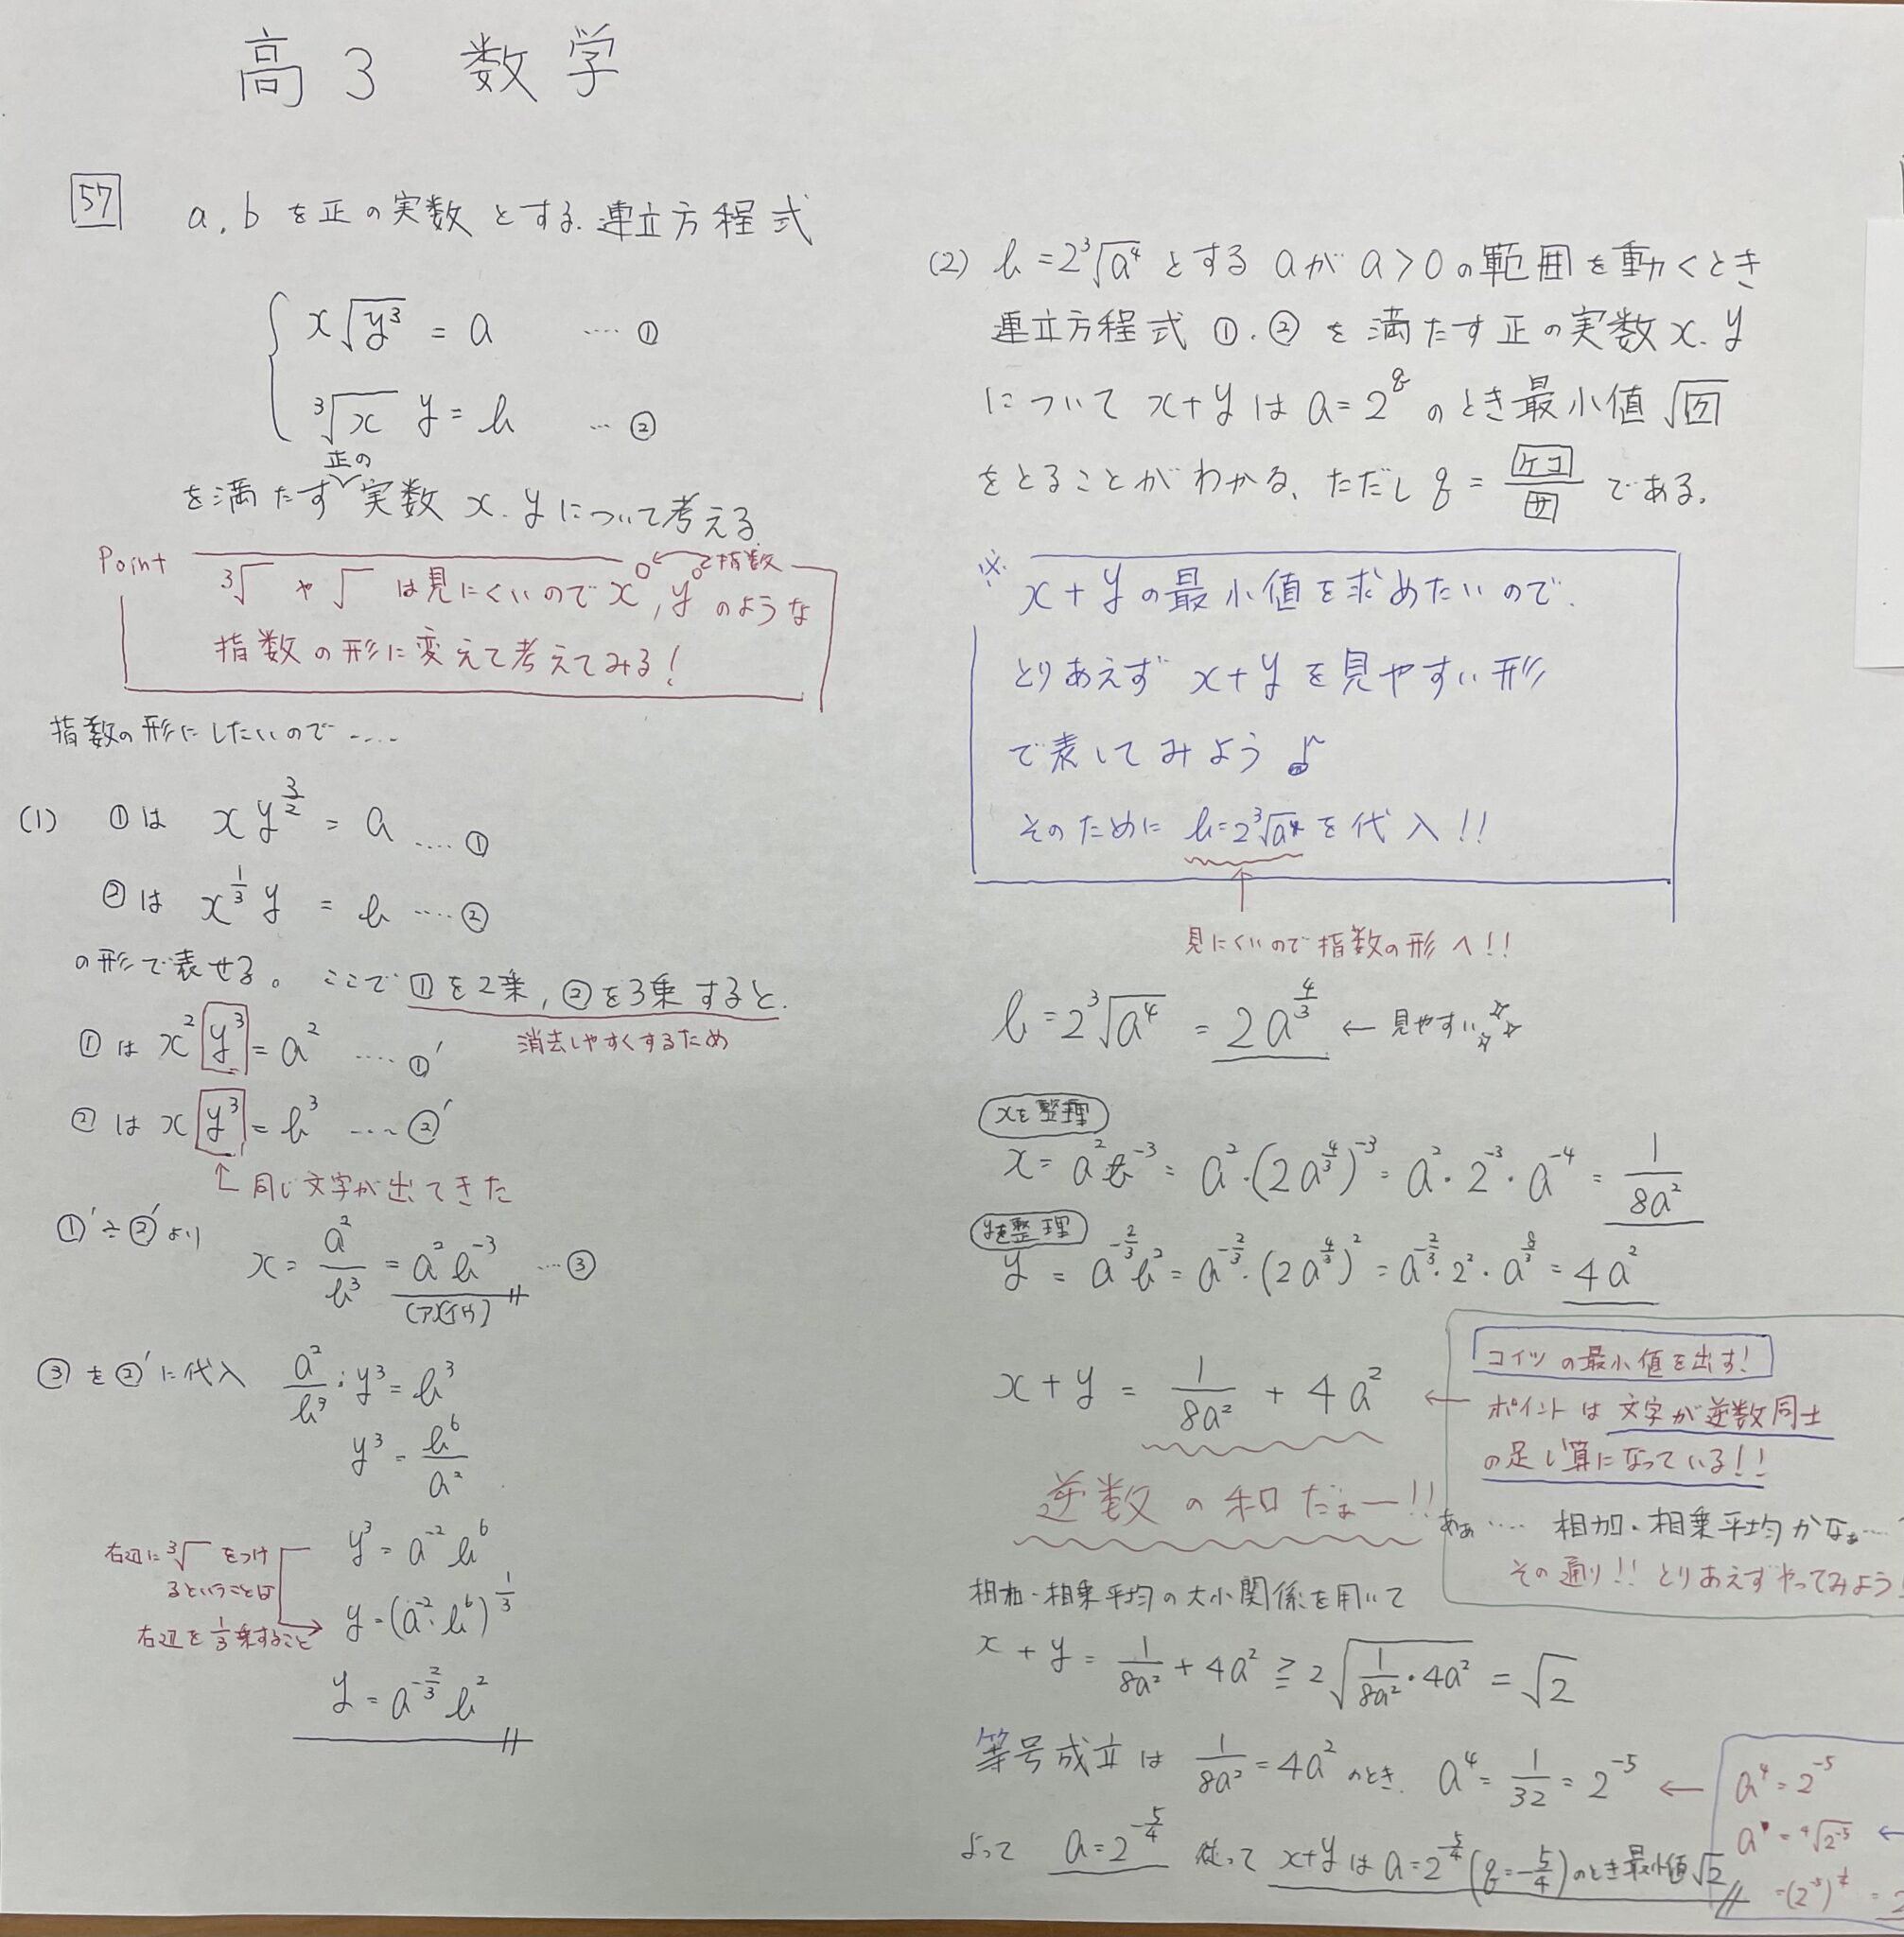 高3 数学
57
a, b を正の実数とする.連立方程式
x√y³ = a ‥‥ ①
³√x y = b ‥ ②
正の
を満たす実数 x. y について考える.
Point
指数
³√ や √ は見にくいので x○, y○ のような
指数の形に変えて考えてみる!
指数の形にしたいので ‥‥
(1) ①は x y^{3/2} = a ‥‥ ①
②は x^{1/3} y = b ‥‥ ②
の形で表せる。ここで ①を2乗, ②を3乗すると.
消去しやすくするため
①は x² y³ = a² ‥‥ ①′
②は x y³ = b³ ‥‥ ②′
同じ文字が出てきた
①′÷②′より x = a²/b³ = a² b⁻³ ‥‥ ③
③を②′に代入 a²/b³ · y³ = b³
y³ = b⁶/a²
y³ = a⁻² b⁶
右辺に ³√ をつけ
るということは
右辺を 1/3 乗すること
y = (a⁻²·b⁶)^{1/3}
y = a^{-2/3} b²
(2) b = 2³√a⁴ とする aが a>0 の範囲を動くとき
連立方程式 ①.② を満たす正の実数 x. y
について x+y は a = 2^q のとき最小値 √シ
をとることがわかる、ただし q = ケコ/サ である.
※ x+y の最小値を求めたいので.
とりあえず x+y を見やすい形
で表してみよう♪
そのために b=2³√a⁴ を代入!!
↑
見にくいので指数の形へ!!
b = 2³√a⁴ = 2a^{4/3} ← 見やすい☆☆☆
xを整理
x = a² b⁻³ = a²·(2a^{4/3})⁻³ = a²·2⁻³·a⁻⁴ = 1/8a²
yを整理
y = a^{-2/3} b² = a^{-2/3}·(2a^{4/3})² = a^{-2/3}·2²·a^{8/3} = 4a²
x + y = 1/8a² + 4a² ←
コイツの最小値を出す!
ポイントは文字が逆数同士
の足し算になっている!!
逆数の和だぁー!!
あぁ‥‥ 相加・相乗平均かなぁ‥‥?
その通り!! とりあえずやってみよう!
相加・相乗平均の大小関係を用いて
x + y = 1/8a² + 4a² ≧ 2√(1/8a²·4a²) = √2
等号成立は 1/8a² = 4a² のとき. a⁴ = 1/32 = 2⁻⁵ ←
よって a = 2^{-5/4} 従って x+y は a = 2^{-5/4} (q = -5/4) のとき最小値 √2
a⁴ = 2⁻⁵
a = ⁴√2⁻⁵ ←
= (2⁻⁵)^{1/4} = 2